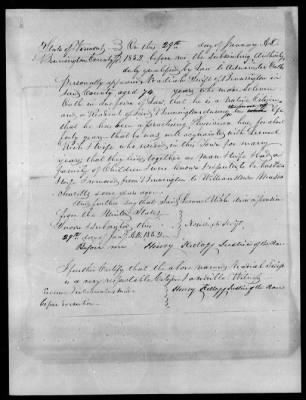 State of Vermont } On this 29th day of January A.D.
Bennington County Ss. } 1853 before me the Subscribing Authority
duly qualified by Law to Administer Oaths
personally appeared Noadiah Swift of Bennington in
said County aged 74 years who upon Solemn
Oath in due form of Law, that he is a Native Citizen
and a Resident of Said Bennington
that he has been a practising Physician here, for about
forty years that he was well acquainted with Lemuel
Rich & wife who resided in this Town for many
years that they lived together as man & wife & had a
family of Children who were reputable
& removed from Bennington to Williamstown Massa
chusetts some years ago
and further say that said Lemuel Rich drew a pension
from the United States.
Sworn & Subscribed this } Noadiah Swift
29th day of Jany A.D. 1853 }
Before me Henry Kellogg Justice of the Peace
I further Certify that the above named Noadiah Swift
is a very respectable Citizen & a credible Witness
} Henry Kellogg Justice of the Peace